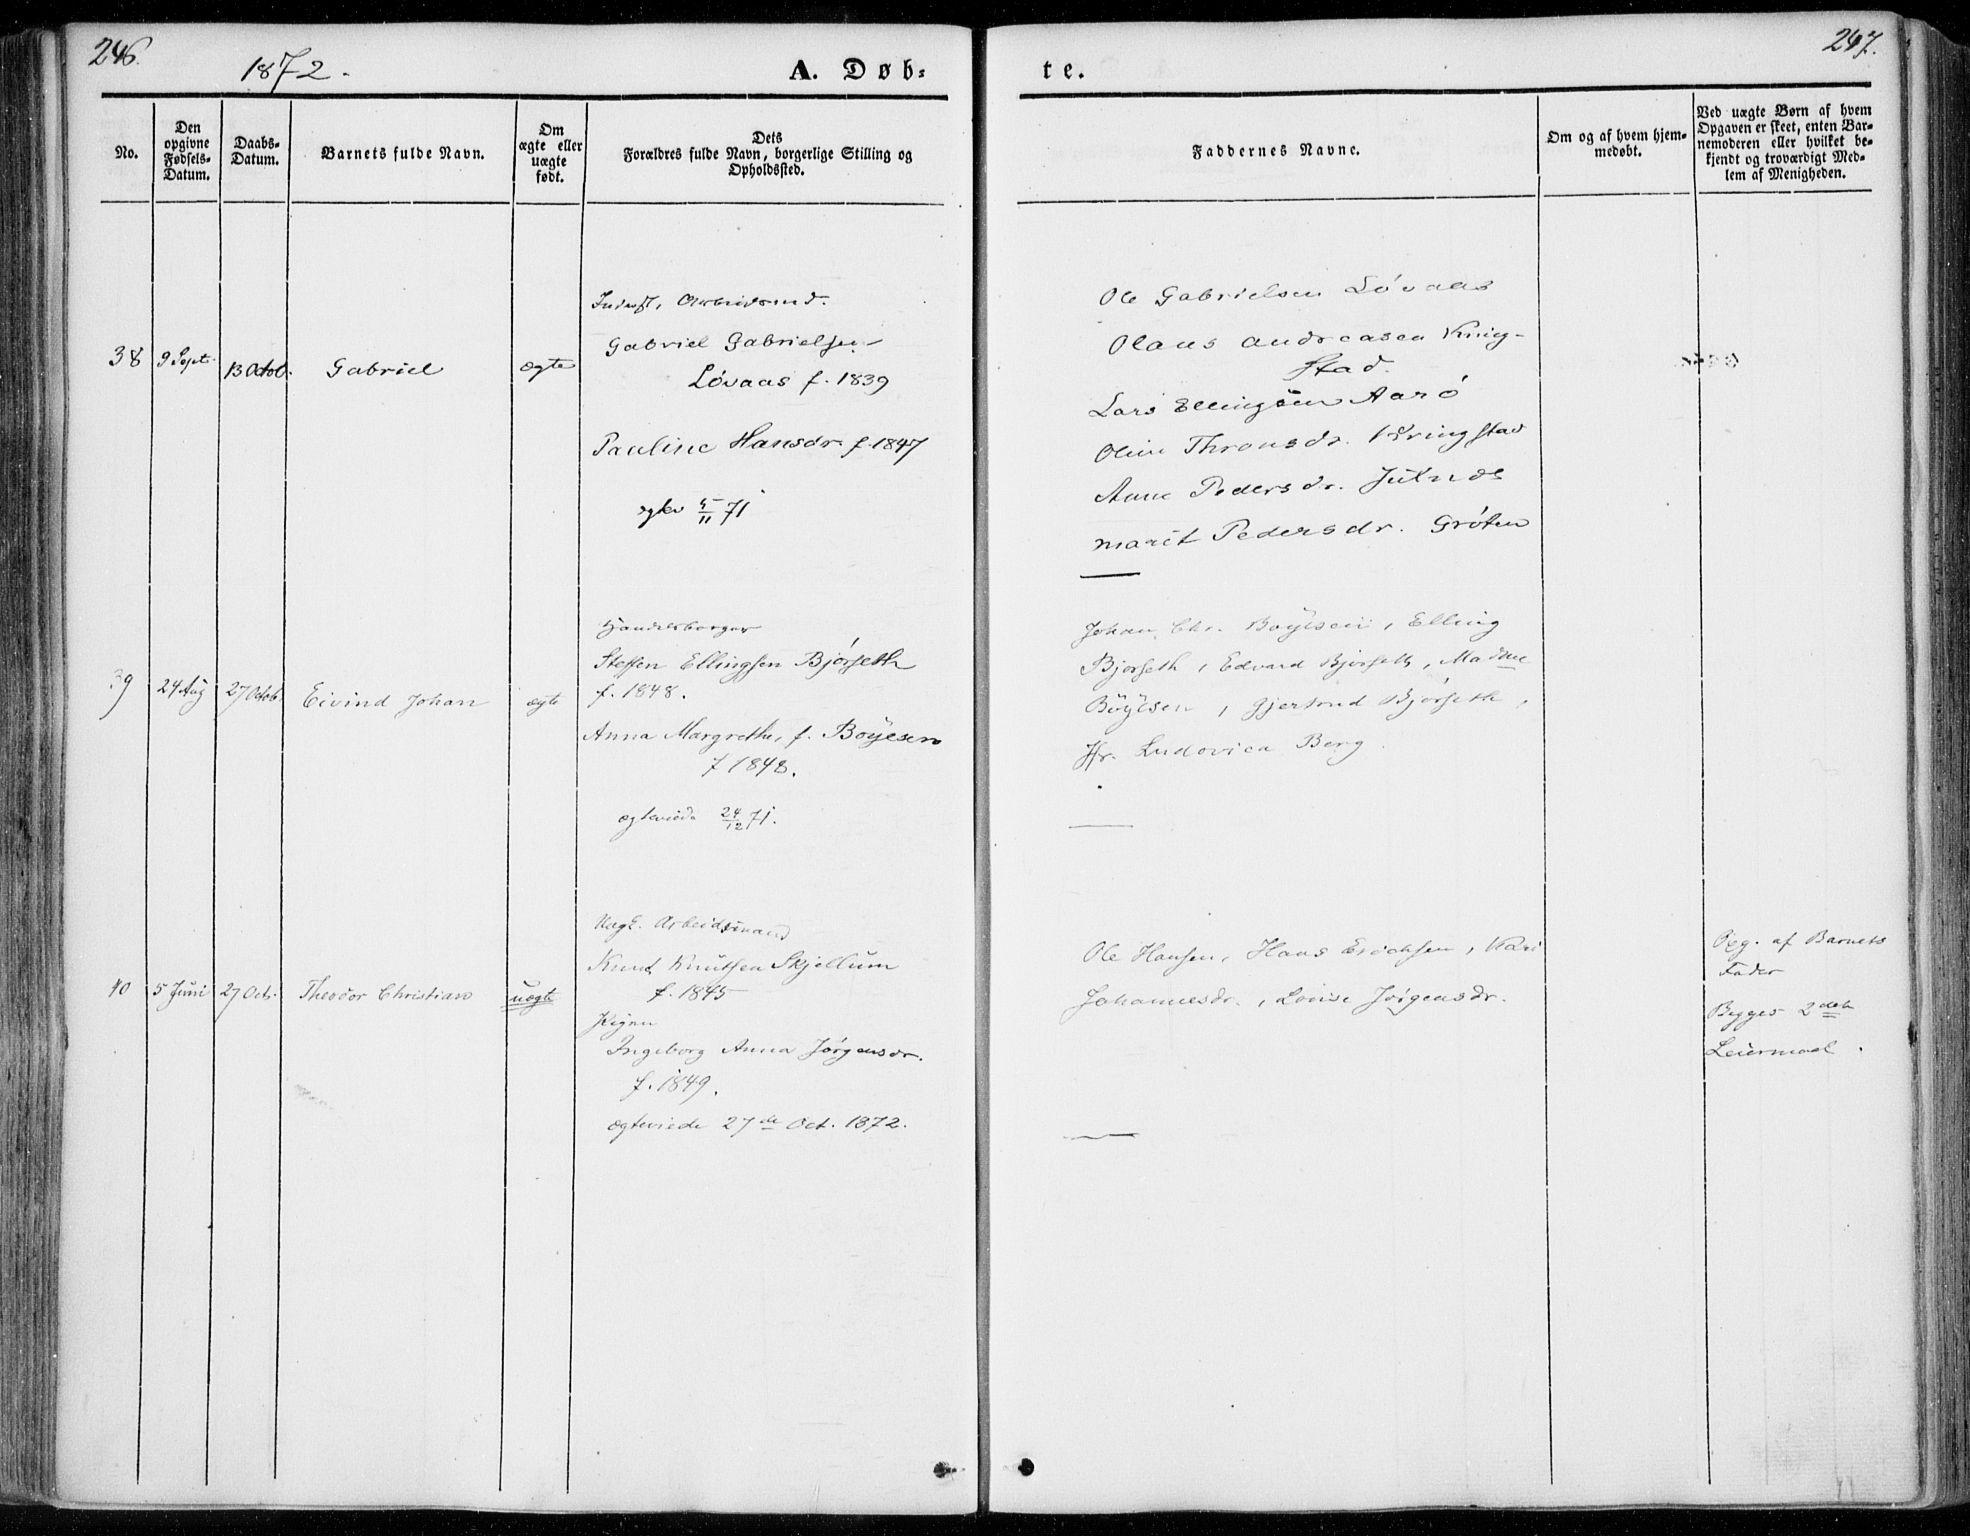 246.
1872.
A. Døb-
te.
247.
No.
Den
opgivne
Fødsels-
Datum.
Daabs-
Datum.
Barnets fulde Navn.
Om
ægte eller
uægte
født.
Dets
Forældres fulde Navn, borgerlige Stilling og
Opholdssted.
Faddernes Navne.
Om og af hvem hjem-
medøbt.
Ved uægte Børn af hvem
Opgaven er skeet, enten Bar-
nemoderen eller hvilket be-
kjendt og troværdigt Med-
lem af Menigheden.
38
9 Sept.
13 Octob.
Gabriel
ægte
Inderst, Arbeidsmd.
Gabriel Gabrielsen
Løvaas f. 1839
Pauline Hansdr f. 1847
egtev 5/11 71
Ole Gabrielsen Løvaas
Olaus Andreasen Kring-
stad.
Lars Ellingsen Aarø
Oline Thronsdr. Kringstad
Anne Pedersdr. Julnæs
Marit Pedersdr. Grøten
39
24 Aug
27 Octob.
Eivind Johan
ægte
Handelsborger
Steffen Ellingsen Bjørseth
f. 1848.
Anna Margrethe, f. Böyesen
f 1848.
ægteviede 24/12 71.
Johan Chr. Boyesen, Elling
Bjørseth, Edvard Bjørseth, Madme
Böyesen, Gjertrud Bjørseth,
Fr. Ludovica Berg.
40
5 Juni
27 Oct.
Theodor Christian
uægte
Ungk. Arbeidsmand
Knud Knutsen Skjellum
f. 1845
Pigen
Ingeborg Anna Jørgensdr.
f. 1849.
ægteviede 27de Oct. 1872.
Ole Hansen, Hans Erichsen, Kari
Johannesdr., Louise Jørgensdr.
Opg. af Barnets
Fader
Begges 2det
Leiermaal.